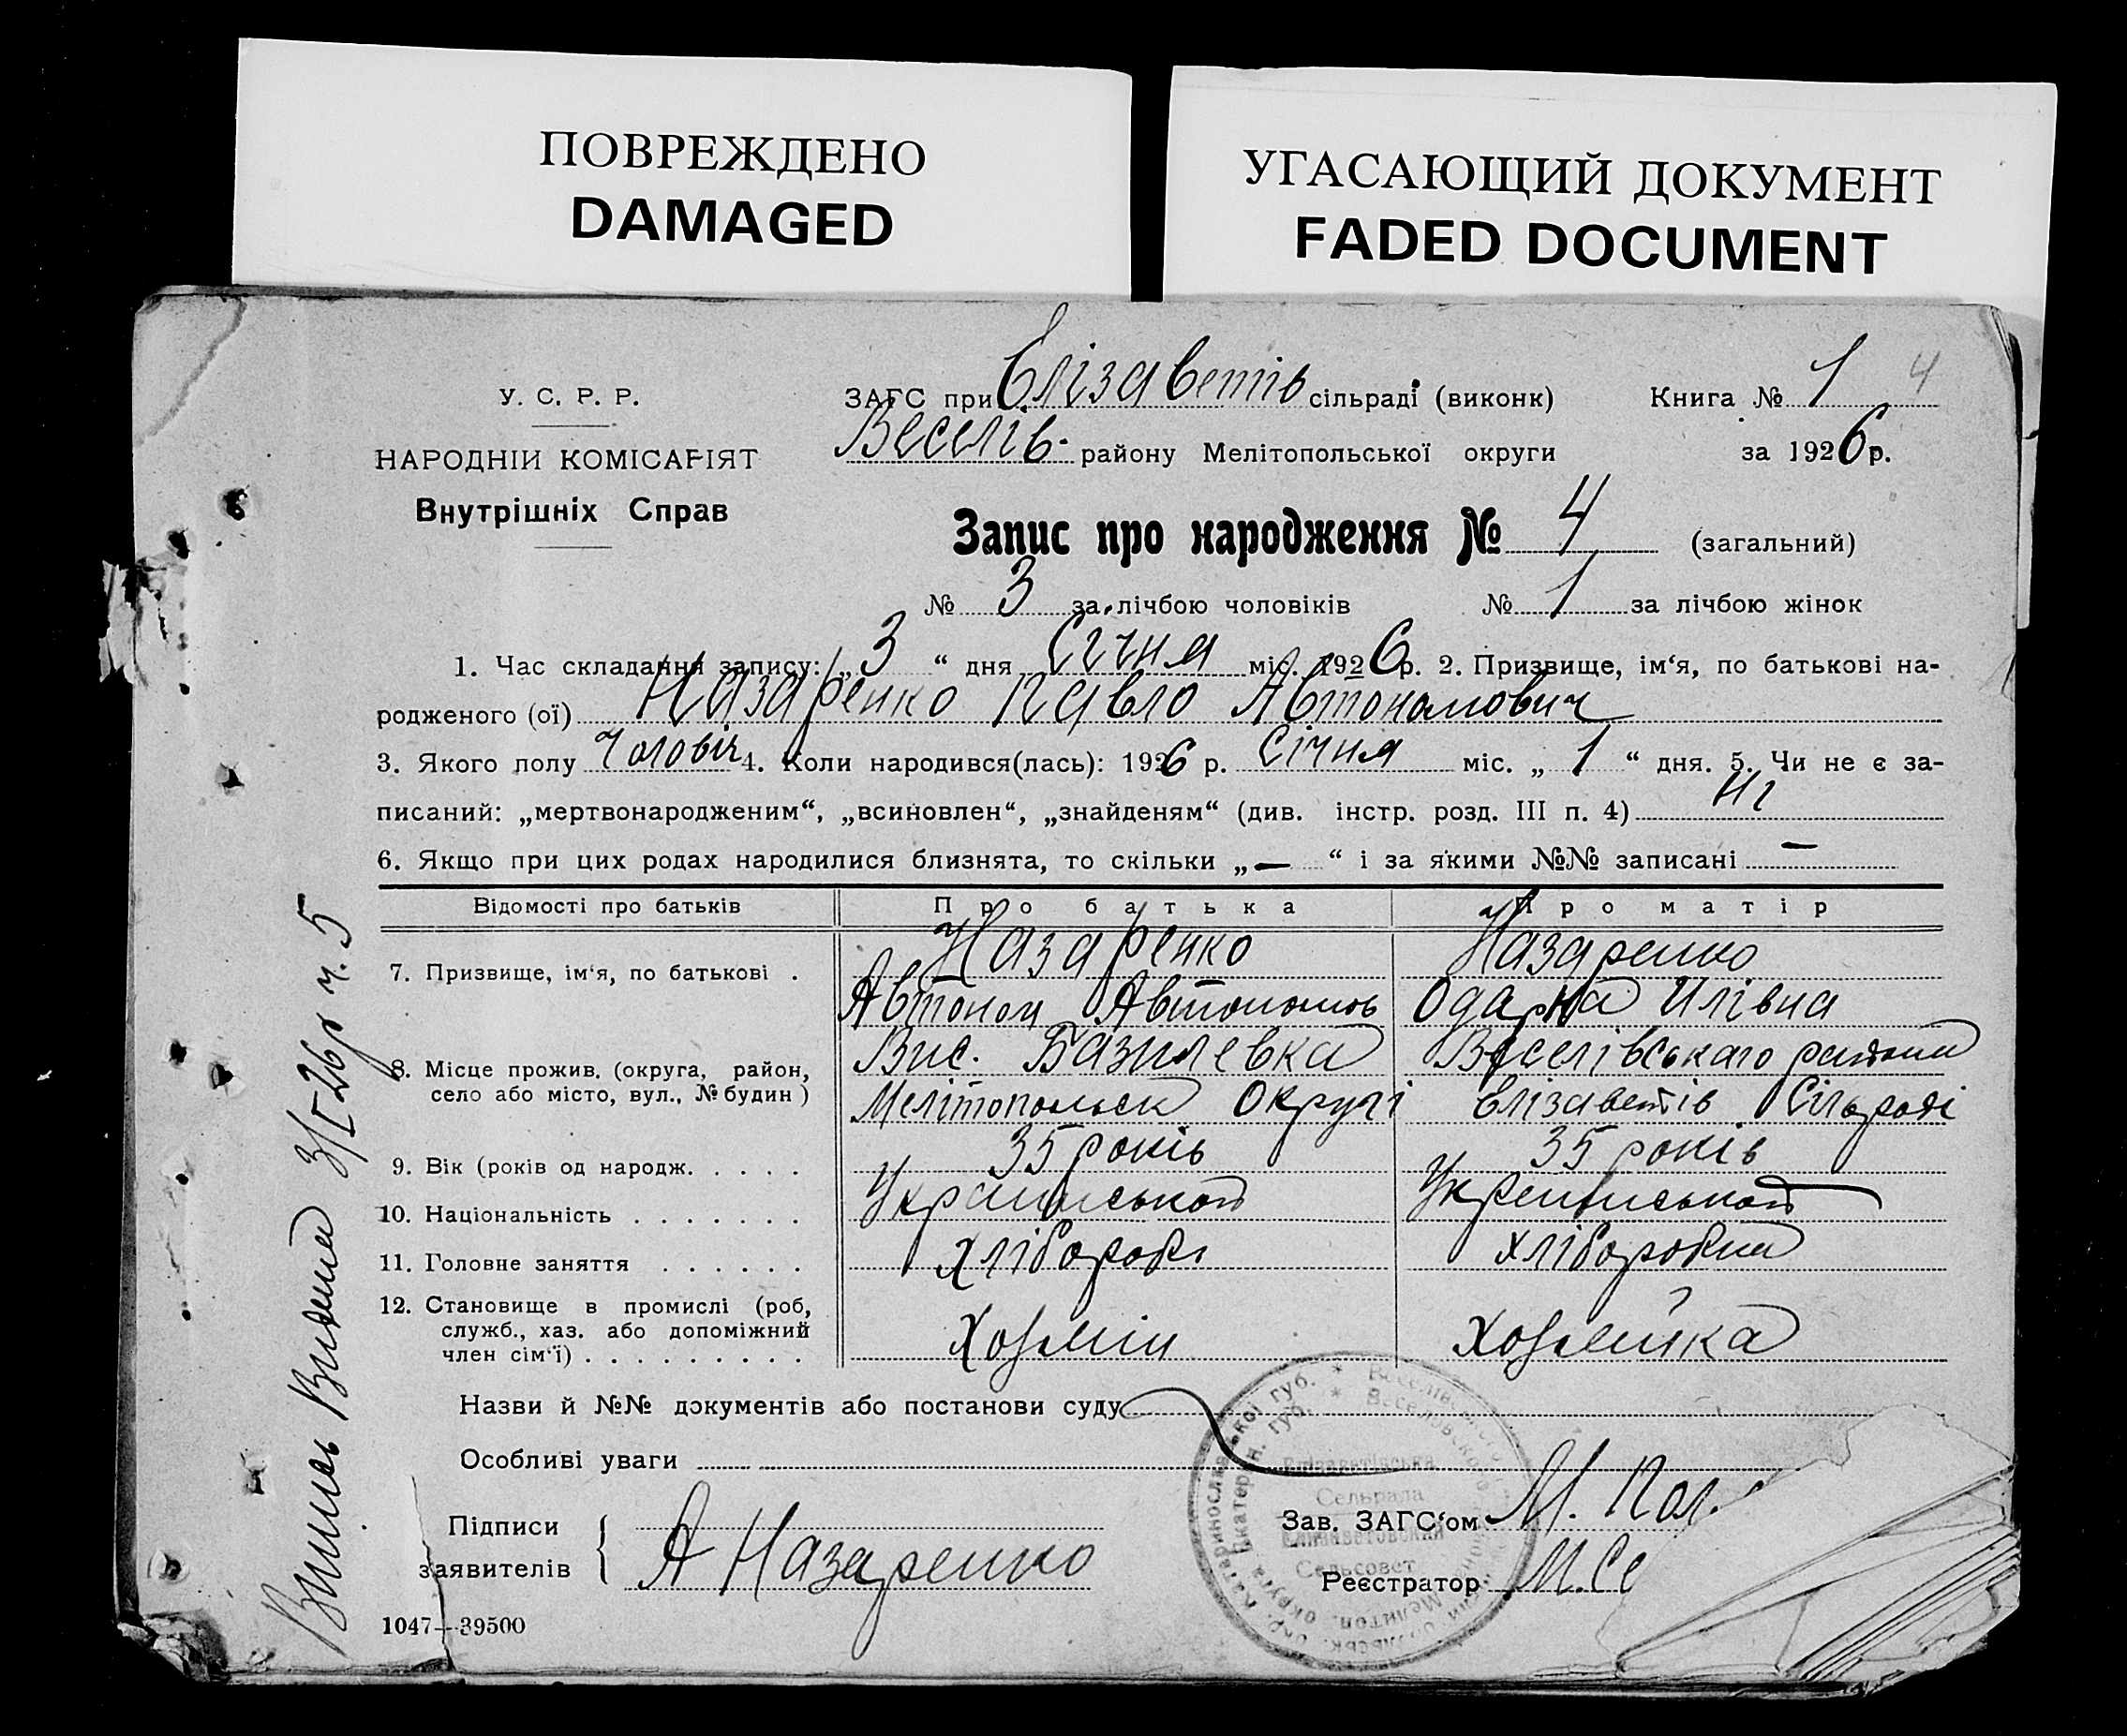 ПОВРЕЖДЕНО
DAMAGED
УГАСАЮЩИЙ ДОКУМЕНТ
FADED DOCUMENT
У. С. Р. Р.
НАРОДНІЙ КОМІСАРІЯТ
Внутрішніх Справ
ЗАГС при Єлізаветів сільраді (виконк) Книга № 1 4
Веселів. району Мелітопольської округи за 1926 р.
Запис про народження № 4 (загальний)
№ 3 за лічбою чоловіків № 1 за лічбою жінок
1. Час складання запису: „3“ дня Січня міс. 1926 р. 2. Призвище, ім‘я, по батькові на-
родженого (ої) Назаренко Павло Автономович
3. Якого полу Чоловіч 4. Коли народився(лась): 1926 р. Січня міс. „1“ дня. 5. Чи не є за-
писаний: „мертвонародженим“, „всиновлен“, „знайденям“ (див. інстр. розд. III п. 4) Ні
6. Якщо при цих родах народилися близнята, то скільки „—“ і за якими №№ записані —
Відомості про батьків Про батька Про матір
7. Призвище, ім‘я, по батькові . Назаренко Назаренко
Автоном Автономов Одарка Илівна
8. Місце прожив. (округа, район, село або місто, вул., № будин) Вис. Базилевка Веселівськаго района
Мелітопольск Округі Єлізаветів Сільраді
9. Вік (років од народж. . . . . 35 років 35 років
10. Національність . . . . . . . Украинськой Украинськой
11. Головне заняття . . . . . . Хлібороб Хліборобка
12. Становище в промислі (роб, служб., хаз. або допоміжний член сім‘ї) . . . . . . . . . Хозяїн Хозяйка
Назви й №№ документів або постанови суду
Особливі уваги
Підписи
заявителів А Назаренко
Зав. ЗАГС‘ом М. Пол.
Реєстратор М. Се
1047—39500
Єлізаветівська
Сельрада
Елизаветовский
Сельсовет
3/I 26 р ч. 5